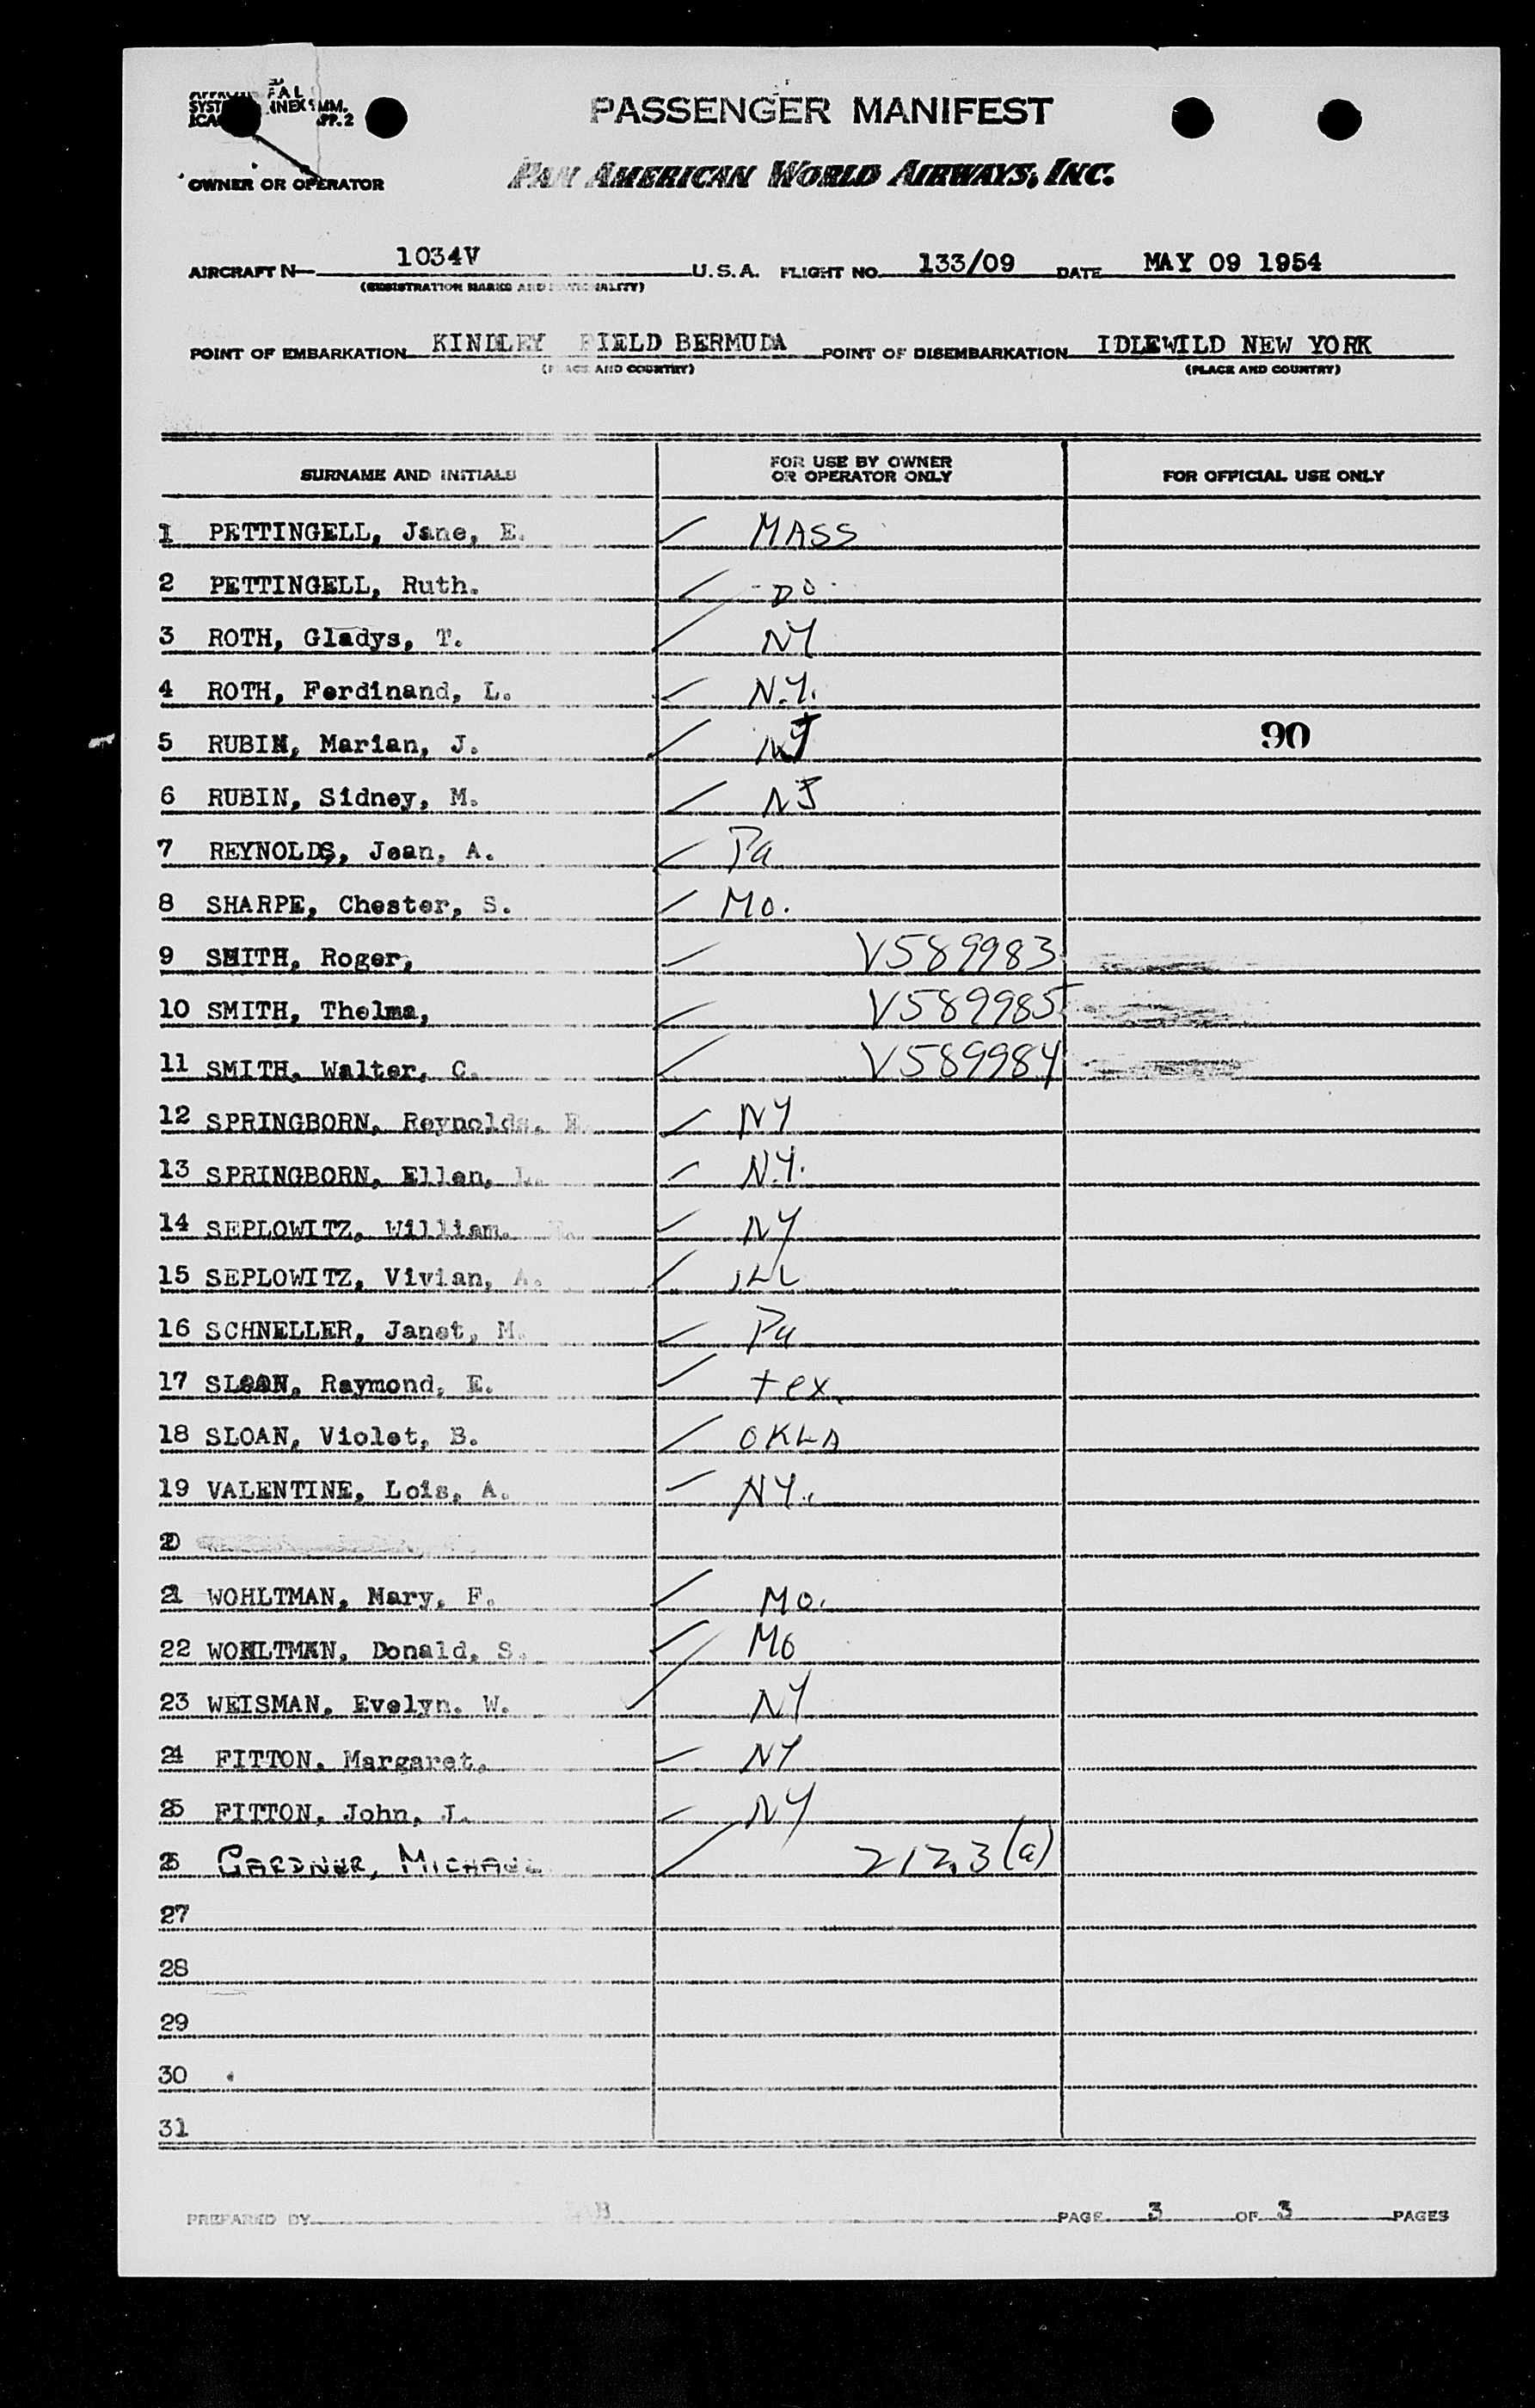 PASSENGER MANIFEST
PAN AMERICAN WORLD AIRWAYS, INC.
OWNER OR OPERATOR
AIRCRAFT N 1034V U.S.A. FLIGHT NO. 133/09 DATE MAY 09 1954
(REGISTRATION MARKS AND NATIONALITY)
POINT OF EMBARKATION KINDLEY FIELD BERMUDA POINT OF DISEMBARKATION IDLEWILD NEW YORK
(PLACE AND COUNTRY) (PLACE AND COUNTRY)
SURNAME AND INITIALS FOR USE BY OWNER OR OPERATOR ONLY FOR OFFICIAL USE ONLY
1 PETTINGELL, Jane, E. MASS
2 PETTINGELL, Ruth. - DO -
3 ROTH, Gladys, T. NY
4 ROTH, Ferdinand, L. N.Y.
5 RUBIN, Marian, J. NJ 90
6 RUBIN, Sidney, M. NJ
7 REYNOLDS, Jean, A. Pa
8 SHARPE, Chester, S. Mo.
9 SMITH, Roger, V589983
10 SMITH, Thelma, V589985
11 SMITH, Walter, C. V589984
12 SPRINGBORN, Reynolds, NY
13 SPRINGBORN, Ellen, L. N.Y.
14 SEPLOWITZ, William. NY
15 SEPLOWITZ, Vivian, A. ILL
16 SCHNELLER, Janet, M. Pa
17 SLOAN, Raymond, E. tex.
18 SLOAN, Violet, B. OKLA
19 VALENTINE, Lois, A. NY.
20
21 WOHLTMAN, Mary, F. Mo.
22 WOHLTMAN, Donald, S. Mo
23 WEISMAN, Evelyn. W. NY
24 FITTON, Margaret, NY
25 FITTON, John, J. NY
26 GARDNER, MICHAEL 212.3(a)
27
28
29
30
31
PREPARED BY PAGE 3 OF 3 PAGES